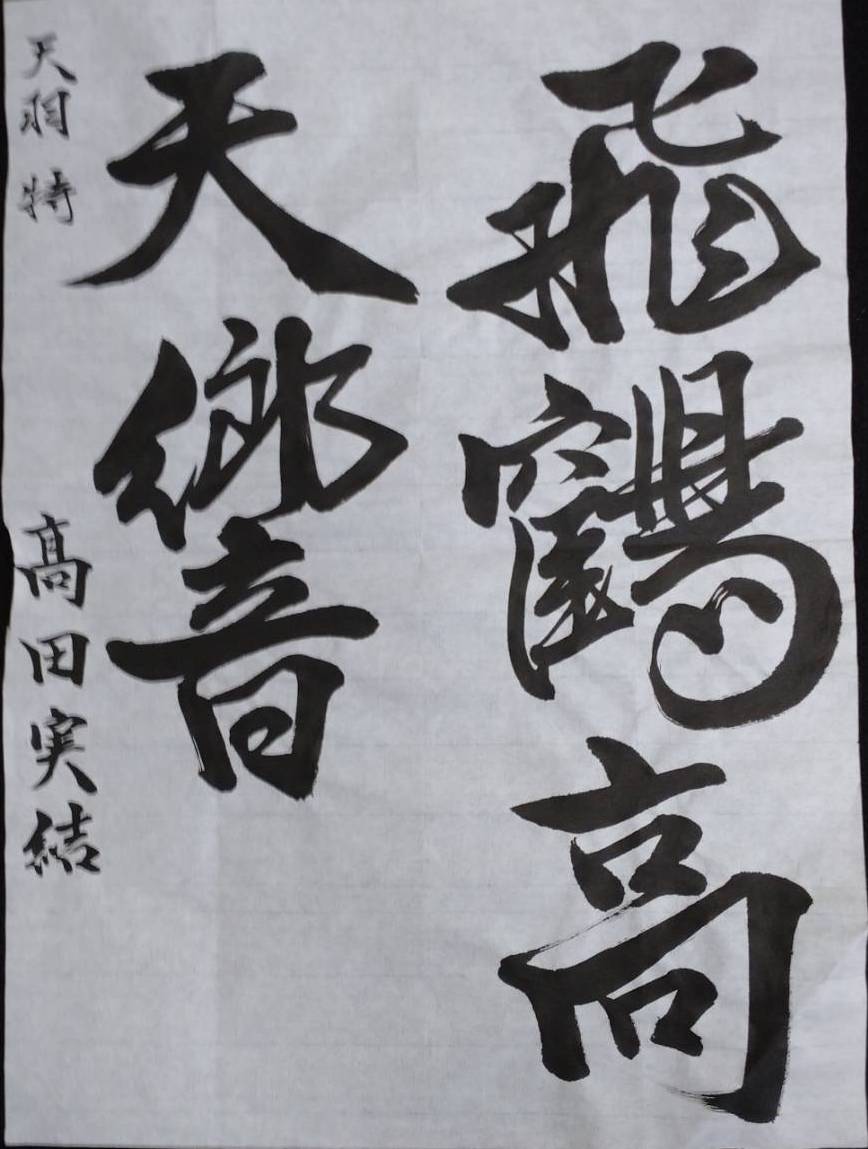 飛鶴高
天響音
天羽 特
髙田実結